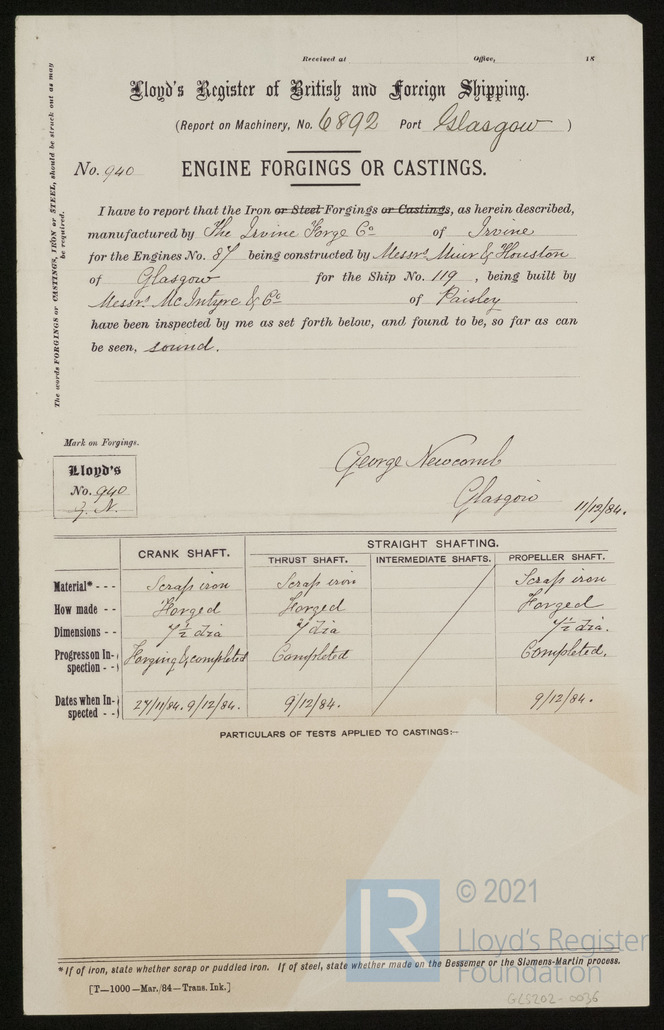 Received at Office, 18
Lloyd's Register of British and Foreign Shipping.
(Report on Machinery, No. 6892 Port Glasgow )
No. 940 ENGINE FORGINGS OR CASTINGS.
I have to report that the Iron or Steel Forgings or Castings, as herein described,
manufactured by The Irvine Forge Co of Irvine
for the Engines No. 87 being constructed by Messrs Muir & Houston
of Glasgow for the Ship No. 119, being built by
Messrs McIntyre & Co of Paisley
have been inspected by me as set forth below, and found to be, so far as can
be seen, sound.
The words FORGINGS or CASTINGS, IRON or STEEL, should be struck out as may
be required.
Mark on Forgings.
Lloyd's
No. 940
G. N.
George Newcomb
Glasgow 11/12/84.
CRANK SHAFT. STRAIGHT SHAFTING.
THRUST SHAFT. INTERMEDIATE SHAFTS. PROPELLER SHAFT.
Material* - - - Scrap iron Scrap iron Scrap iron
How made - - Forged Forged Forged
Dimensions - - 7½ dia dia 7½ dia.
Progress on In- Forging & completed Completed Completed.
spection - -
Dates when In- 27/11/84. 9/12/84. 9/12/84. 9/12/84.
spected - -
PARTICULARS OF TESTS APPLIED TO CASTINGS:--
© 2021
LR
Lloyd's Register
Foundation
*If of iron, state whether scrap or puddled iron. If of steel, state whether made on the Bessemer or the Siemens-Martin process.
[T—1000—Mar./84—Trans. Ink.]
GLS202-0036